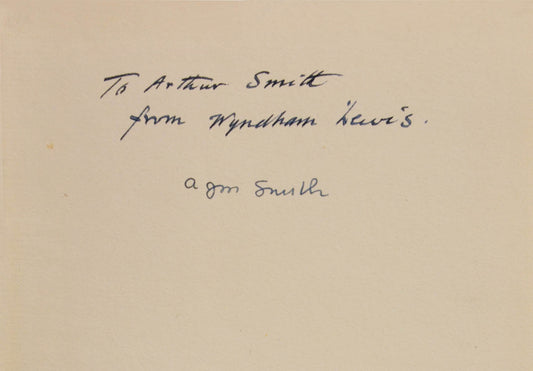 To Arthur Smith
from Wyndham Lewis.
a gm Smith